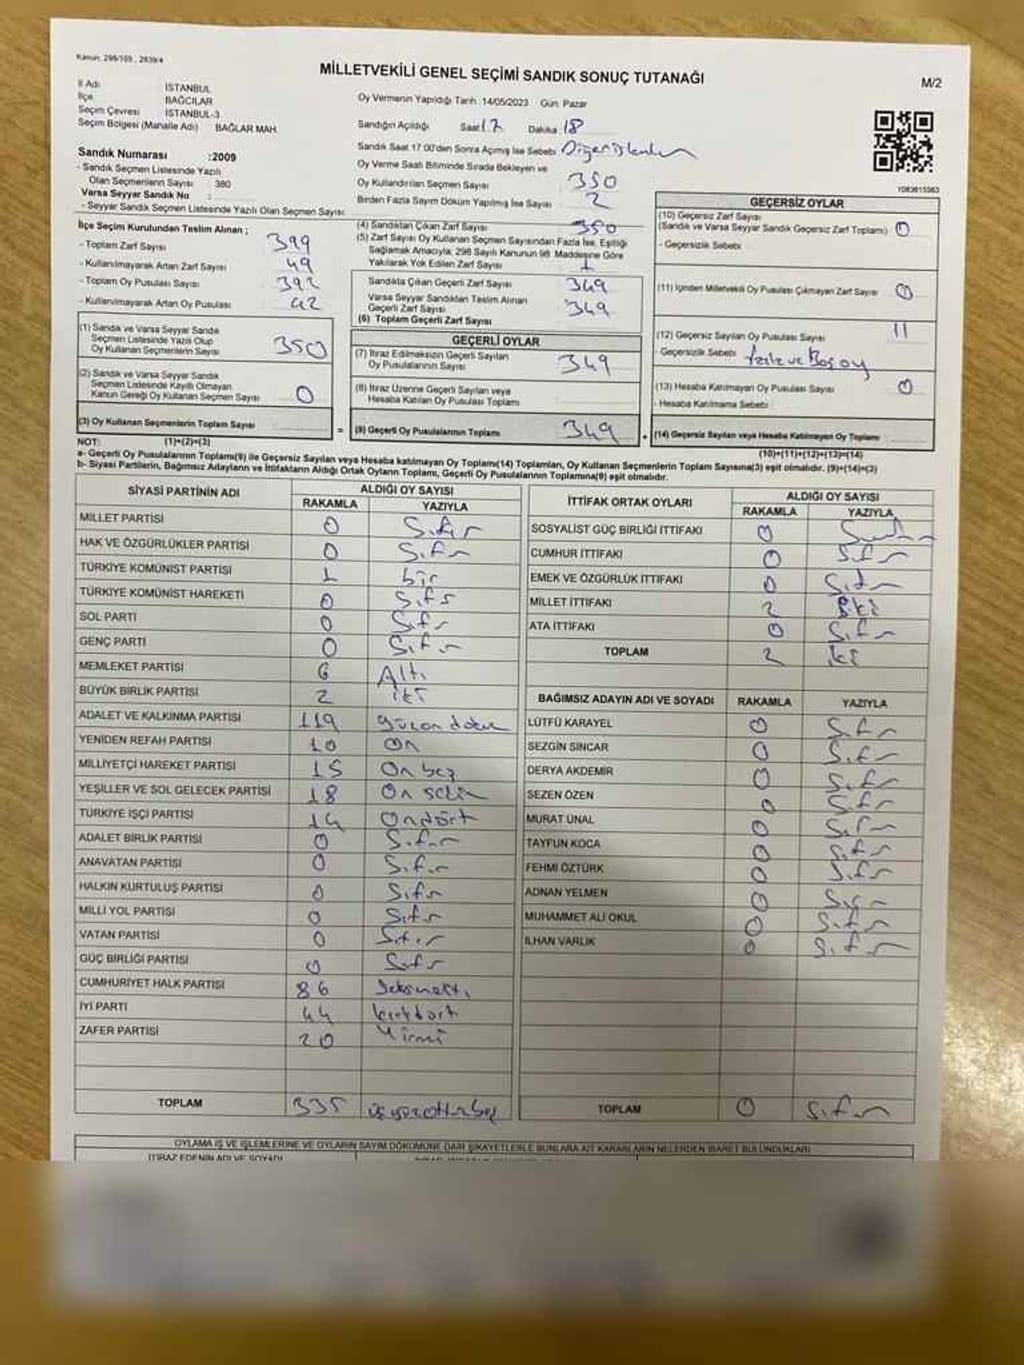 Kanun: 298/105 , 2839/4
MİLLETVEKİLİ GENEL SEÇİMİ SANDIK SONUÇ TUTANAĞI
M/2
İl Adı İSTANBUL
İlçe BAĞCILAR
Seçim Çevresi İSTANBUL-3
Seçim Bölgesi (Mahalle Adı) BAĞLAR MAH.
Oy Vermenin Yapıldığı Tarih :14/05/2023 Gün: Pazar
Sandığın Açıldığı Saat 17 Dakika 18
Sandık Saat 17:00'den Sonra Açımış İse Sebebi
Oy Verme Saati Bitiminde Sırada Bekleyen ve
Oy Kullandırılan Seçmen Sayısı 350
Birden Fazla Sayım Döküm Yapılmış İse Sayısı 2
Sandık Numarası :2009
- Sandık Seçmen Listesinde Yazılı
Olan Seçmenlerin Sayısı : 380
Varsa Seyyar Sandık No :
- Seyyar Sandık Seçmen Listesinde Yazılı Olan Seçmen Sayısı:
İlçe Seçim Kurulundan Teslim Alınan ;
- Toplam Zarf Sayısı 399
- Kullanılmayarak Artan Zarf Sayısı 49
- Toplam Oy Pusulası Sayısı 392
- Kullanılmayarak Artan Oy Pusulası 42
(1) Sandık ve Varsa Seyyar Sandık
Seçmen Listesinde Yazılı Olup
Oy Kullanan Seçmenlerin Sayısı 350
(2) Sandık ve Varsa Seyyar Sandık
Seçmen Listesinde Kayıtlı Olmayan
Kanun Gereği Oy Kullanan Seçmen Sayısı 0
(3) Oy Kullanan Seçmenlerin Toplam Sayısı
(4) Sandıktan Çıkan Zarf Sayısı 350
(5) Zarf Sayısı Oy Kullanan Seçmen Sayısından Fazla İse, Eşitliği
Sağlamak Amacıyla; 298 Sayılı Kanunun 98. Maddesine Göre
Yakılarak Yok Edilen Zarf Sayısı 1
Sandıkta Çıkan Geçerli Zarf Sayısı 349
Varsa Seyyar Sandıktan Teslim Alınan
Geçerli Zarf Sayısı 349
(6) Toplam Geçerli Zarf Sayısı
GEÇERLİ OYLAR
(7) İtiraz Edilmeksizin Geçerli Sayılan
Oy Pusulasının Sayısı 349
(8) İtiraz Üzerine Geçerli Sayılan veya
Hesaba Katılan Oy Pusulası Toplamı
= (9) Geçerli Oy Pusulalarının Toplamı 349
GEÇERSİZ OYLAR
(10) Geçersiz Zarf Sayısı
(Sandık ve Varsa Seyyar Sandık Geçersiz Zarf Toplamı) 0
- Geçersizlik Sebebi
(11) İçinden Milletvekili Oy Pusulası Çıkmayan Zarf Sayısı 0
(12) Geçersiz Sayılan Oy Pusulası Sayısı 11
- Geçersizlik Sebebi fazla ve Boş oy
(13) Hesaba Katılmayan Oy Pusulası Sayısı 0
- Hesaba Katılmama Sebebi
+ (14) Geçersiz Sayılan veya Hesaba Katılmayan Oy Toplamı
NOT: (1)+(2)=(3) (10)+(11)+(12)+(13)=(14)
a- Geçerli Oy Pusulalarının Toplamı(9) ile Geçersiz Sayılan veya Hesaba katılmayan Oy Toplamı(14) Toplamları, Oy Kullanan Seçmenlerin Toplam Sayısına(3) eşit olmalıdır. (9)+(14)=(3)
b- Siyasi Partilerin, Bağımsız Adayların ve İttifakların Aldığı Ortak Oyların Toplamı, Geçerli Oy Pusulalarının Toplamına(9) eşit olmalıdır.
SİYASİ PARTİNİN ADI ALDIĞI OY SAYISI
RAKAMLA YAZIYLA
MİLLET PARTİSİ 0 Sıfır
HAK VE ÖZGÜRLÜKLER PARTİSİ 0 Sıfır
TÜRKİYE KOMÜNİST PARTİSİ 1 bir
TÜRKİYE KOMÜNİST HAREKETİ 0 Sıfır
SOL PARTİ 0 Sıfır
GENÇ PARTİ 0 Sıfır
MEMLEKET PARTİSİ 6 Altı
BÜYÜK BİRLİK PARTİSİ 2 iki
ADALET VE KALKINMA PARTİSİ 119
YENİDEN REFAH PARTİSİ 10 On
MİLLİYETÇİ HAREKET PARTİSİ 15 On beş
YEŞİLLER VE SOL GELECEK PARTİSİ 18 On sekiz
TÜRKİYE İŞÇİ PARTİSİ 14 Ondört
ADALET BİRLİK PARTİSİ 0 Sıfır
ANAVATAN PARTİSİ 0 Sıfır
HALKIN KURTULUŞ PARTİSİ 0 Sıfır
MİLLİ YOL PARTİSİ 0 Sıfır
VATAN PARTİSİ 0 Sıfır
GÜÇ BİRLİĞİ PARTİSİ 0 Sıfır
CUMHURİYET HALK PARTİSİ 86 Seksenaltı
İYİ PARTİ 44 kırkdört
ZAFER PARTİSİ 20 Yirmi
TOPLAM 335 üçyüzotuzbeş
İTTİFAK ORTAK OYLARI ALDIĞI OY SAYISI
RAKAMLA YAZIYLA
SOSYALİST GÜÇ BİRLİĞİ İTTİFAKI 0
CUMHUR İTTİFAKI 0 Sıfır
EMEK VE ÖZGÜRLÜK İTTİFAKI 0 Sıfır
MİLLET İTTİFAKI 2 iki
ATA İTTİFAKI 0 Sıfır
TOPLAM 2 iki
BAĞIMSIZ ADAYIN ADI VE SOYADI RAKAMLA YAZIYLA
LÜTFÜ KARAYEL 0 Sıfır
SEZGİN SİNCAR 0 Sıfır
DERYA AKDEMİR 0 Sıfır
SEZEN ÖZEN 0 Sıfır
MURAT ÜNAL 0 Sıfır
TAYFUN KOCA 0 Sıfır
FEHMİ ÖZTÜRK 0 Sıfır
ADNAN YELMEN 0 Sıfır
MUHAMMET ALİ OKUL 0 Sıfır
İLHAN VARLIK 0 Sıfır
TOPLAM 0 Sıfır
OYLAMA İŞ VE İŞLEMLERİNE VE OYLARIN SAYIM DÖKÜMÜNE DAİR ŞİKAYETLERLE BUNLARA AİT KARARLARIN NELERDEN İBARET BULUNDUKLARI
İTİRAZ EDENİN ADI VE SOYADI